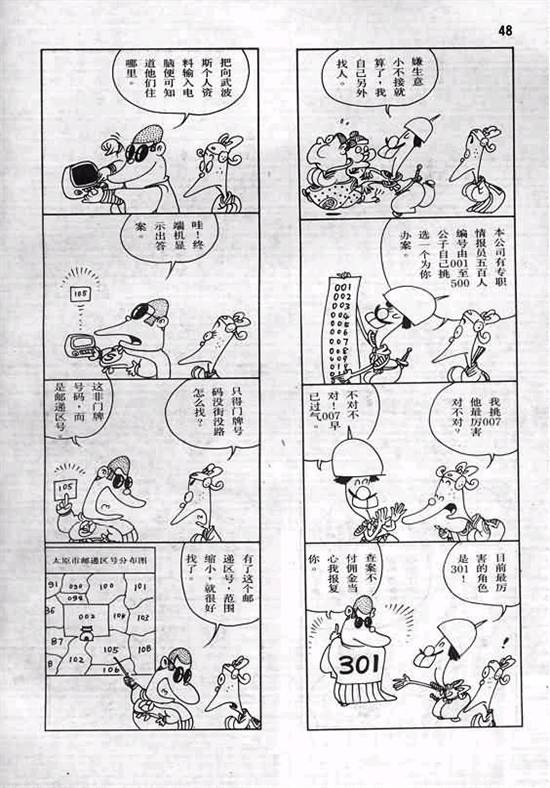 48
嫌生意
小不接就
算了，我
自己另外
找人。
本公司有专职
情报员五百人
编号由001至500
公子自己挑
选一个为你
办案。
001
002
003
004
005
006
007
008
我挑007
他最厉害
对不对？
不对不
对！007早
已过气。
目前最厉
害的角色
是301！
!
查案不
付佣金当
心我报复
你。
301
把向武波
斯个人资
料输入电
脑便可知
道他们住
哪里。
哇！终
端机显
示出答
案。
105
只得门牌号
码没街没路
怎么找？
这非门牌
号码，而
是邮递区号。
105
有了这个邮
递区号，范围
缩小，就很好
找了。
太原市邮递区号分布图
91 090 100 101
098
86 002 104 103
87 102 105 108
106